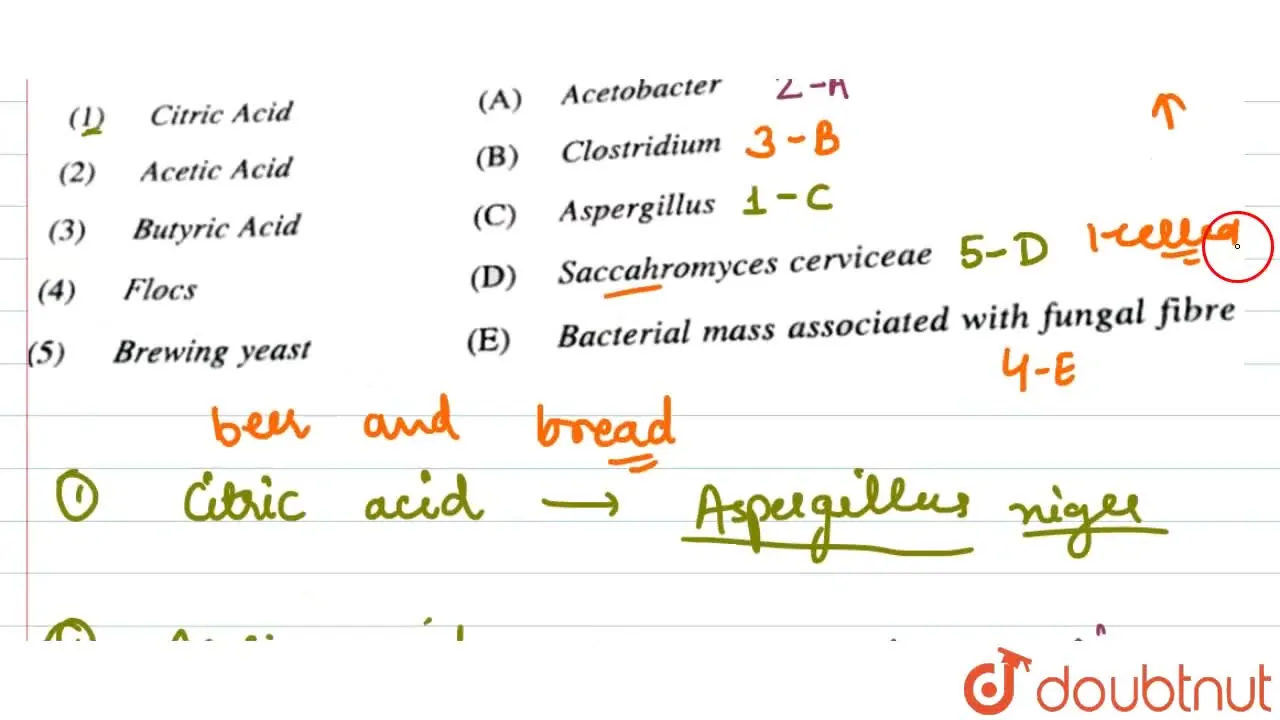 (1) Citric Acid (A) Acetobacter 2-A
(2) Acetic Acid (B) Clostridium 3-B
(3) Butyric Acid (C) Aspergillus 1-C
(4) Flocs (D) Saccahromyces cerviceae 5-D 1-celled
(5) Brewing yeast (E) Bacterial mass associated with fungal fibre
4-E
beer and bread
① Citric acid → Aspergillus niger
doubtnut